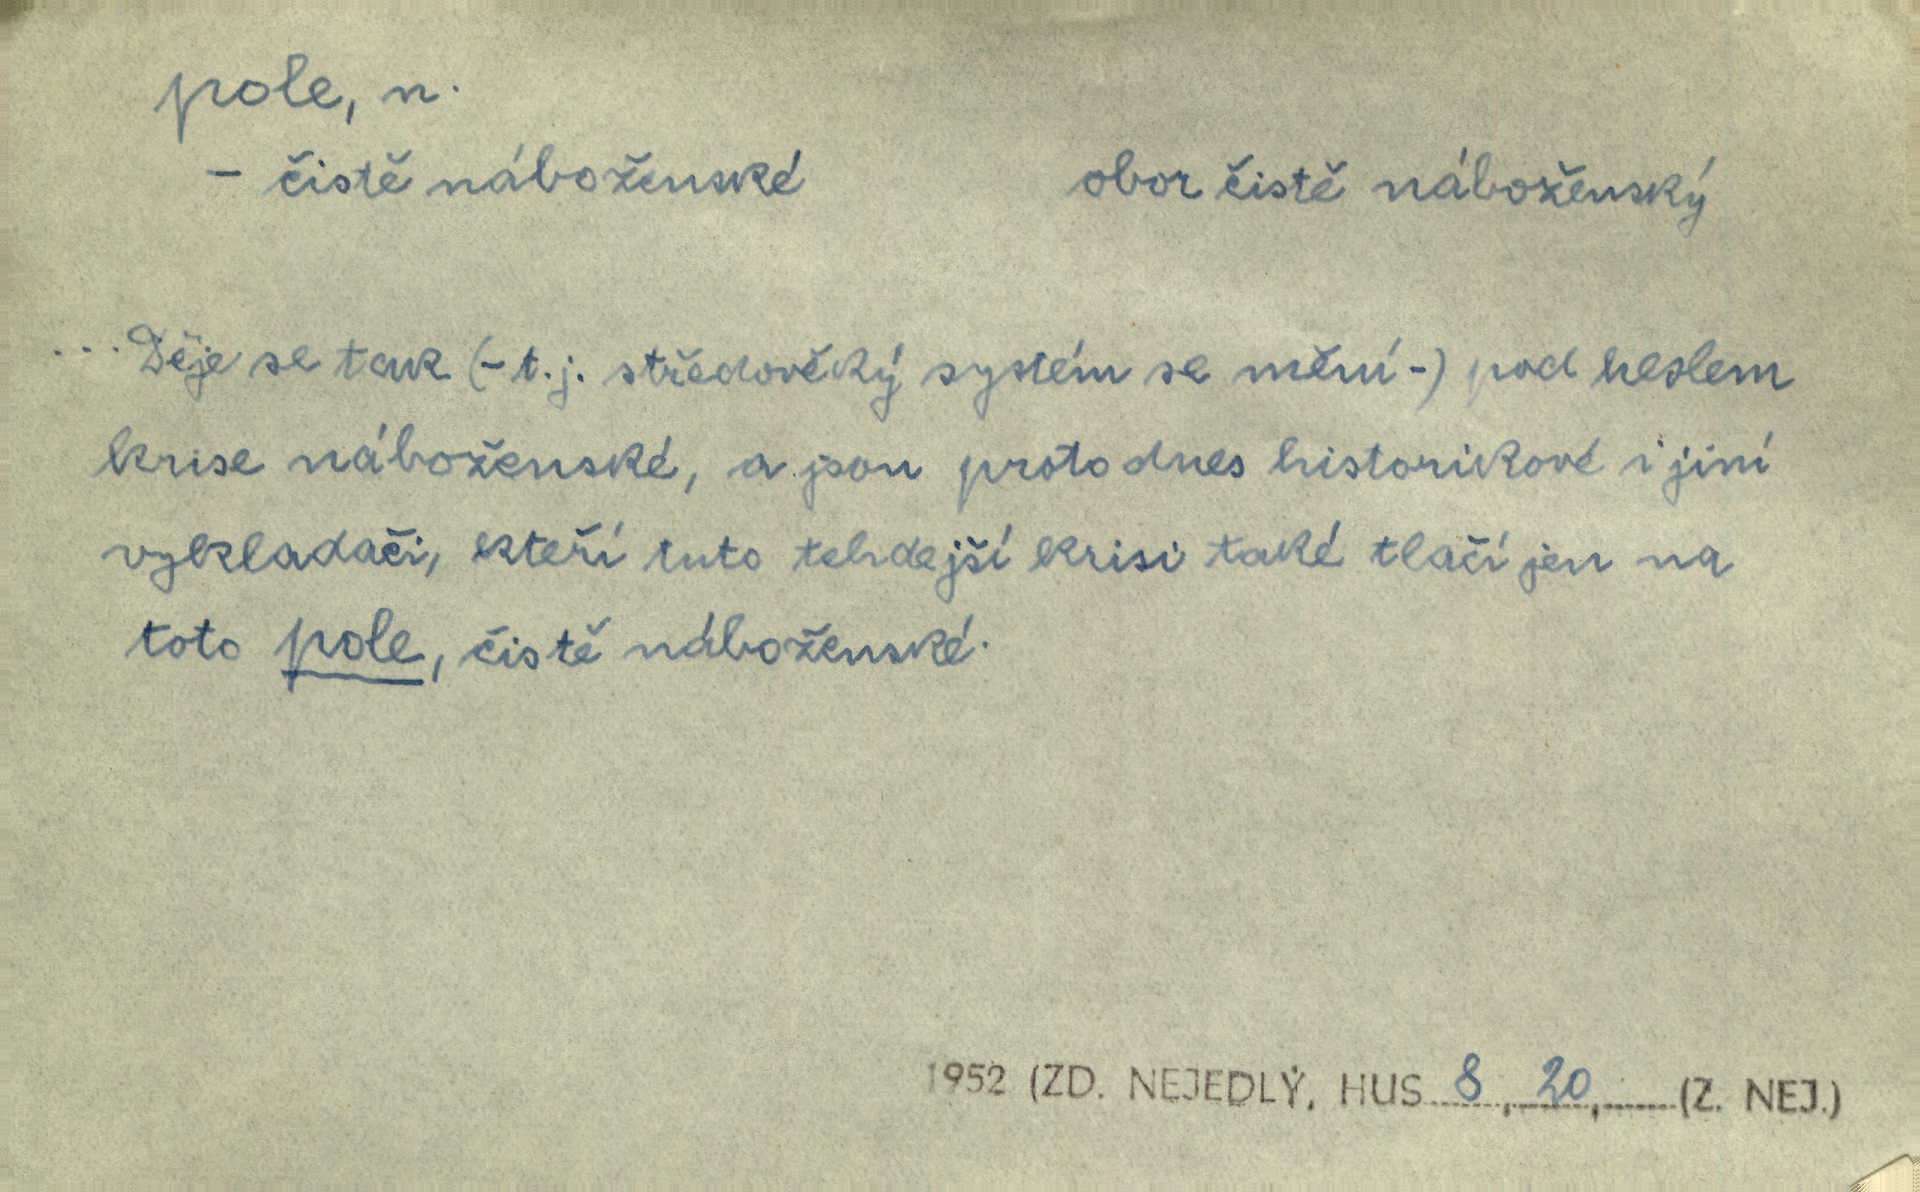 pole, n.
– čistě náboženské obor čistě náboženský
... Děje se tak (– t. j. středověký systém se mění –) pod heslem
krise náboženské, a jsou proto dnes historikové i jiní
vykladači, kteří tuto tehdejší krisi také tlačí jen na
toto pole, čistě náboženské.
1952 (ZD. NEJEDLÝ, HUS 8, 20, (Z. NEJ.)